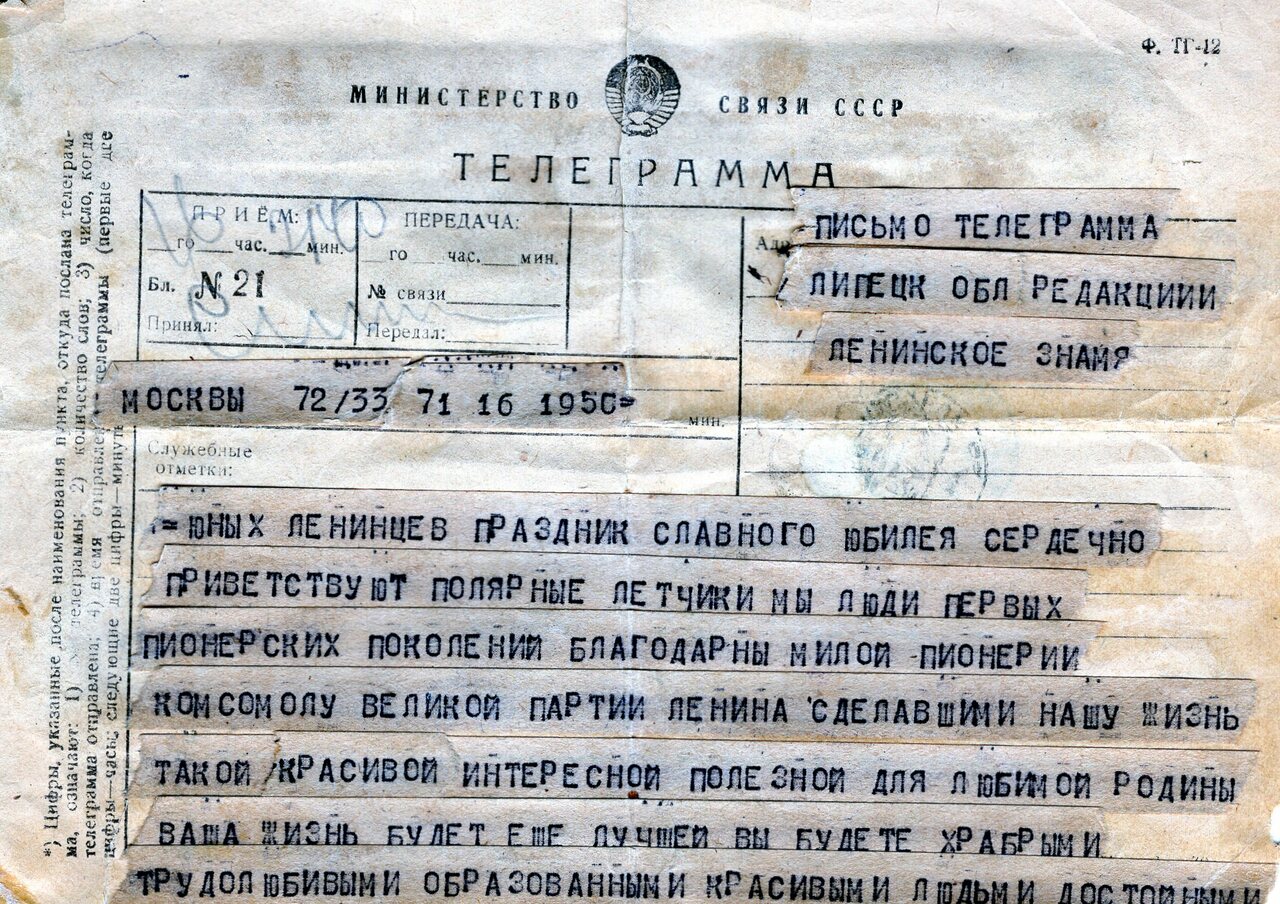 Ф. ТГ-12
МИНИСТЕРСТВО СВЯЗИ СССР
ТЕЛЕГРАММА
ПРИЁМ:
го час. мин.
Бл. № 21
Принял:
ПЕРЕДАЧА:
го час. мин.
№ связи
Передал:
Адр
ПИСЬМО ТЕЛЕГРАММА
ЛИПЕЦК ОБЛ РЕДАКЦИИИ
ЛЕНИНСКОЕ ЗНАМЯ
МОСКВЫ 72/33 71 16 1950=
мин.
Служебные
отметки:
=ЮНЫХ ЛЕНИНЦЕВ ПРАЗДНИК СЛАВНОГО ЮБИЛЕЯ СЕРДЕЧНО
ПРИВЕТСТВУЮТ ПОЛЯРНЫЕ ЛЕТЧИКИ МЫ ЛЮДИ ПЕРВЫХ
ПИОНЕРСКИХ ПОКОЛЕНИЙ БЛАГОДАРНЫ МИЛОЙ ПИОНЕРИИ
КОМСОМОЛУ ВЕЛИКОЙ ПАРТИИ ЛЕНИНА СДЕЛАВШИМИ НАШУ ЖИЗНЬ
ТАКОЙ КРАСИВОЙ ИНТЕРЕСНОЙ ПОЛЕЗНОЙ ДЛЯ ЛЮБИМОЙ РОДИНЫ
ВАША ЖИЗНЬ БУДЕТ ЕШЕ ЛУЧШЕЙ ВЫ БУДЕТЕ ХРАБРЫМИ
ТРУДОЛЮБИВЫМИ ОБРАЗОВАННЫМИ КРАСИВЫМИ ЛЮДЬМИ ДОСТОЙНЫМИ
*) Цифры, указанные после наименования пункта, откуда послана телеграм-
ма, означают: 1) телеграммы; 2) количество слов; 3) число, когда
телеграмма отправлена; 4) время отправлен телеграммы (первые две
цифры—часы; следующие две цифры—минуты